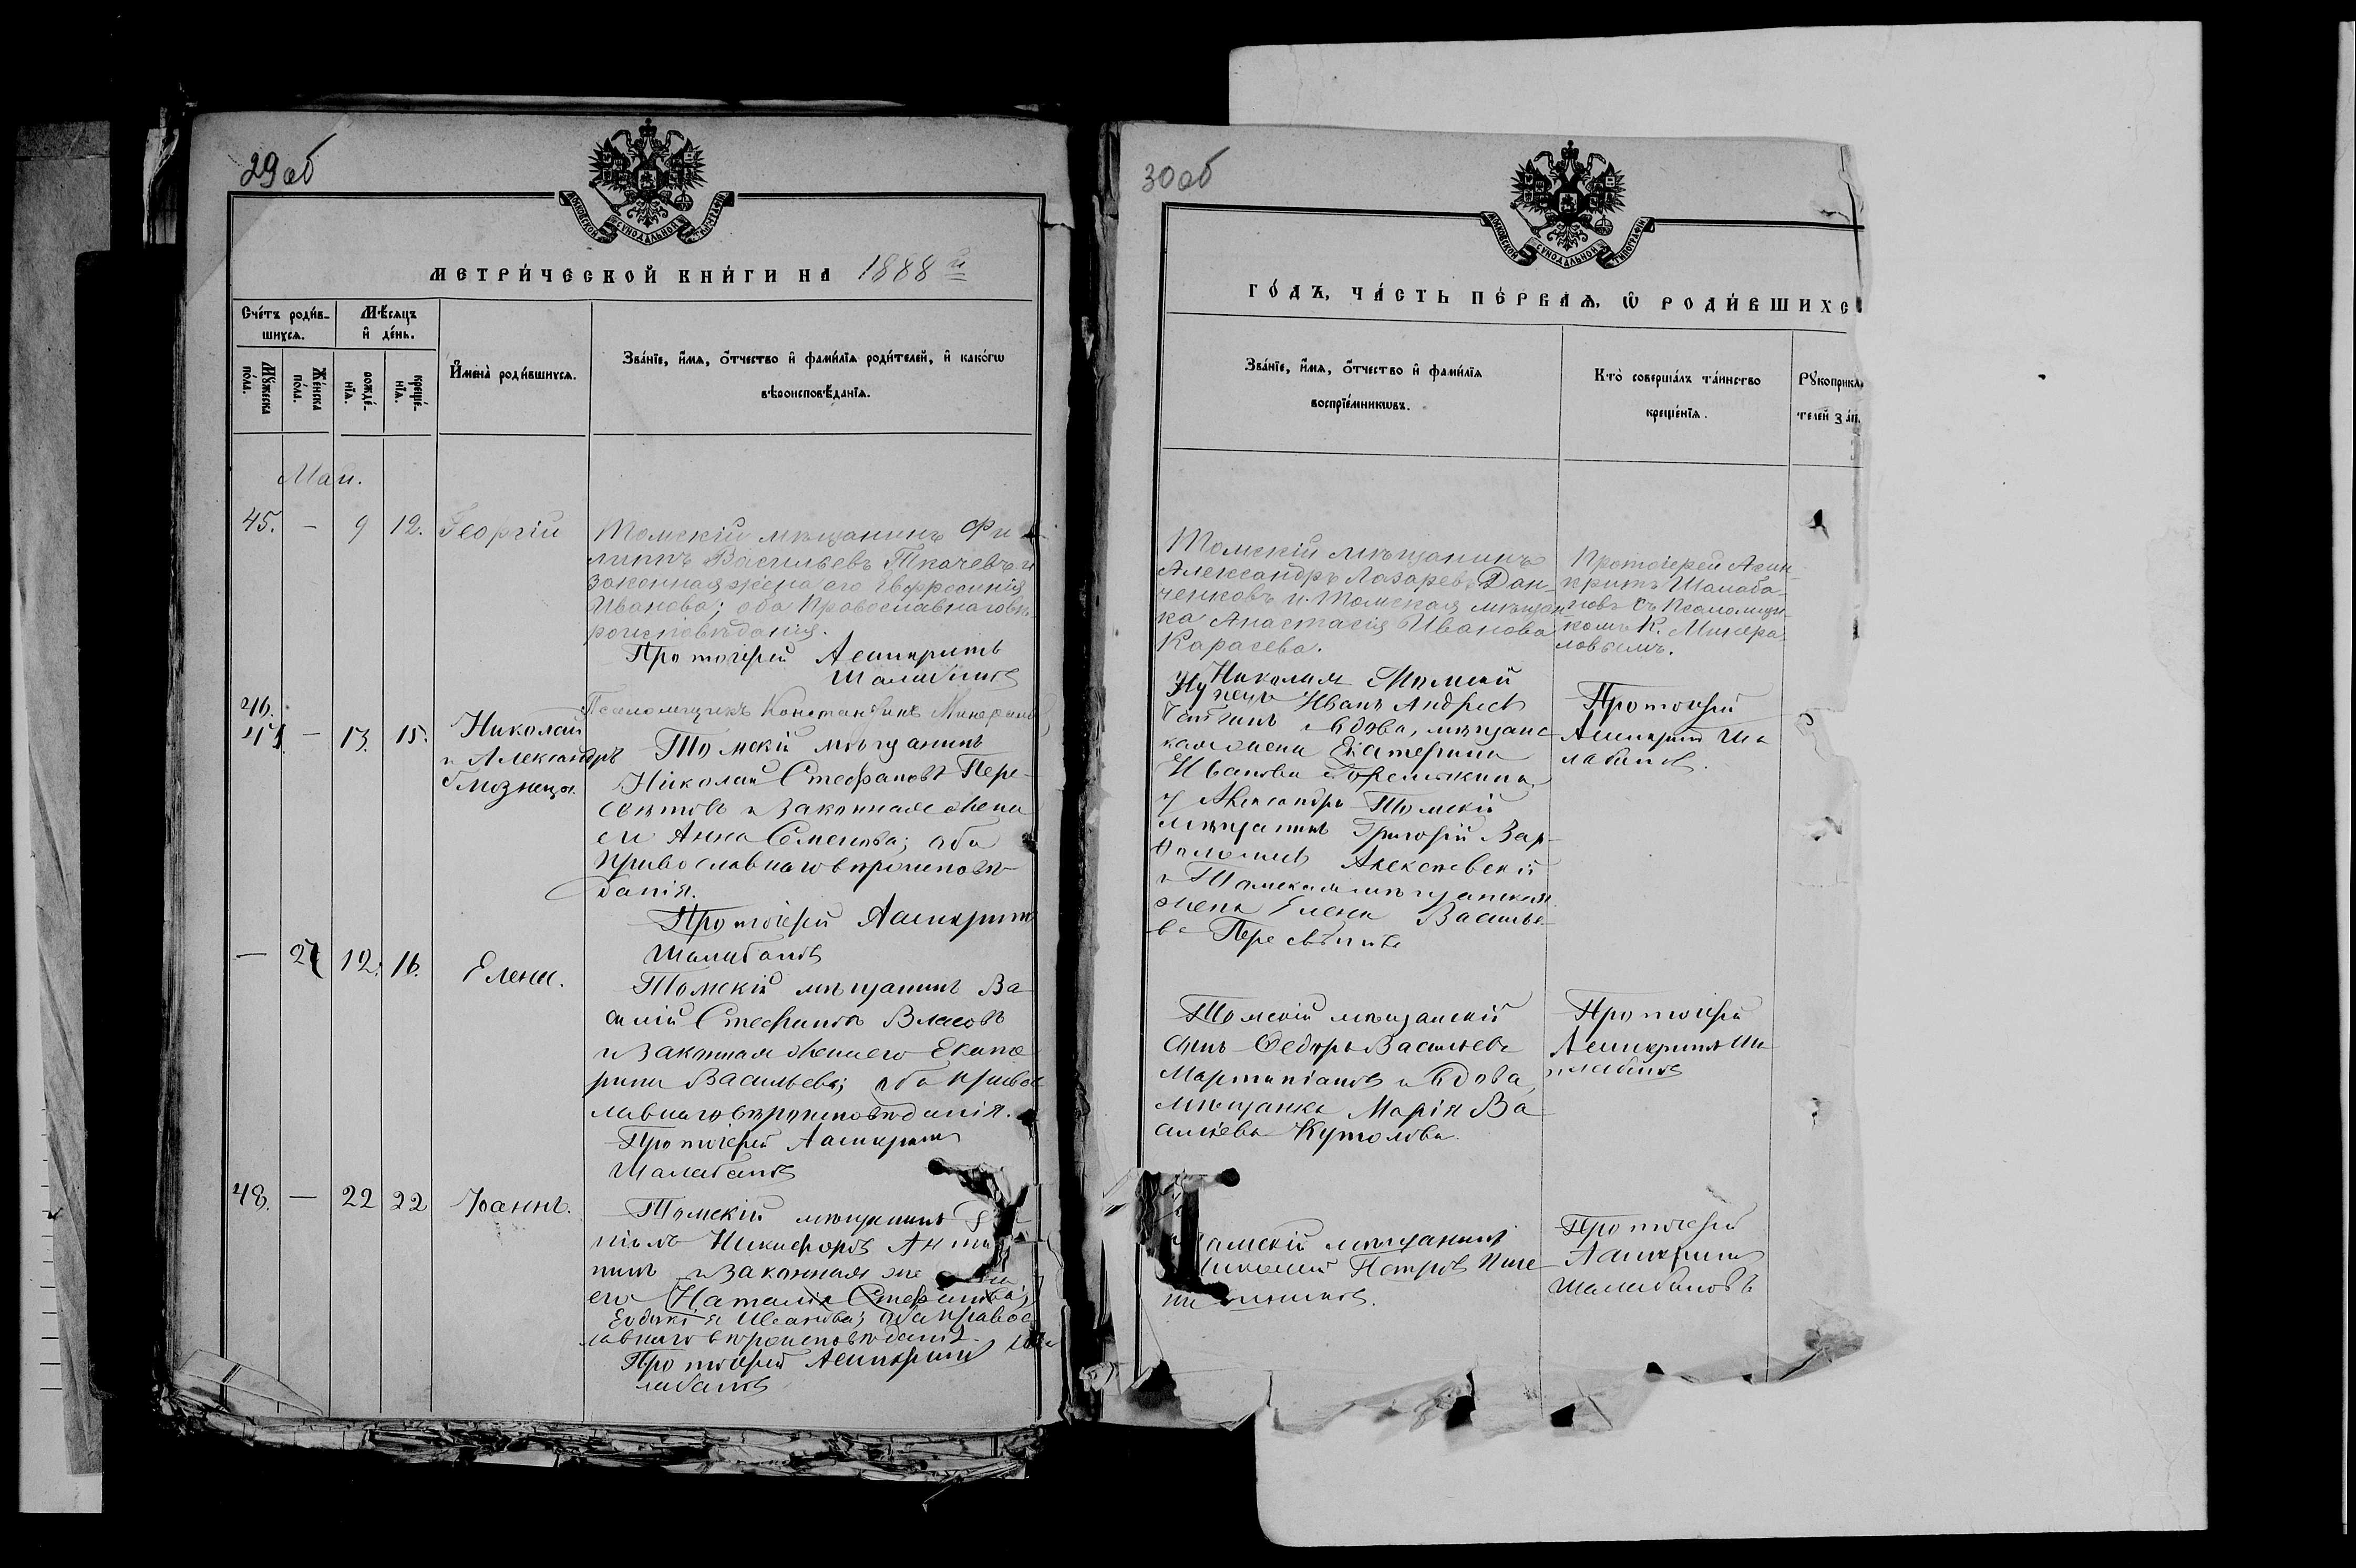 29 об
МОСКОВСКОЙ СУНОДАЛЬНОЙ ТИПОГРАФІИ
МЕТРИ́ЧЕСКОЙ КНИ́ГИ НА 1888 й
Сче́тъ роди́в-
шихся.
Мѣ́сяцъ
и҆ де́нь.
Мꙋ́жеска
по́ла.
Же́нска
по́ла.
рожде́-
нїѧ.
креще́-
нїѧ.
И҆мена̀ роди́вшихсѧ.
Зва́нїе, и҆́мѧ, ѻ҆́тчество и҆ фами́лїѧ роди́телей, и҆ како́гѡ
вѣроисповѣ́данїѧ.
Май.
45. — 9 12. Георгій
Томскій мѣщанинъ Фи-
липпъ Васильевъ Ткачевъ и
законная жена его Евфросинія
Иванова; оба Православнаго вѣ-
роисповѣданія.
Протоіерей Асинкритъ
Шалабановъ
Псаломщикъ Константинъ Минераловъ
46.
47. — 13. 15. Николай
и Александръ
близнецы.
Томскій мѣщанинъ
Николай Стефановъ Пере-
свѣтовъ и законная жена
его Анна Семенова; оба
православнаго вѣроисповѣ-
данія.
Протоіерей Асинкритъ
Шалабановъ
— 27 12. 16. Елена.
Томскій мѣщанинъ Ва-
силій Стефановъ Власовъ
и законная жена его Екате-
рина Васильева; оба правос-
лавнаго вѣроисповѣданія.
Протоіерей Асинкритъ
Шалабановъ
48. — 22 22 Іоаннъ.
Томскій мѣщанинъ
Никифоровъ
и законная же
его Наталія Стефанова;
Евдокія Иванова; оба правос
лавнаго вѣроисповѣданія.
Протоіерей Асинкритъ Ша
лабановъ
30 об
МОСКОВСКОЙ СУНОДАЛЬНОЙ ТИПОГРАФІИ
ГО́ДЪ, ЧА́СТЬ ПЕ́РВАѦ, Ѡ҆ РОДИ́ВШИХС
Зва́нїе, и҆́мѧ, ѻ҆́тчество и҆ фами́лїѧ
воспрїе́мникѡвъ.
Кто̀ соверша́лъ та́инство
креще́нїѧ.
Рꙋкоприкл
телей за́п.
Томскій мѣщанинъ
Александръ Лазаревъ Дан-
ченковъ и Томская мѣщан-
ка Анастасія Иванова
Карасева.
Протоіерей Асин-
критъ Шалаба-
новъ съ Псаломщи-
комъ К. Минера-
ловымъ.
у Николая Томскій
купецъ Иванъ Андреев
вдова, мѣщанс-
кая жена Екатерина
Иванова Горемыкина
у Александра Томскій
мѣщанинъ Григорій Вар-
ѳоломеевъ Алексѣевскій
и Томская мѣщанская
жена Елена Василье-
ва Пересвѣтова
Протоіерей
Асинкритъ Ша
лабановъ.
Томскій мѣщанскій
сынъ Ѳедоръ Васильевъ
Мартиніановъ и вдова,
мѣщанка Марія Ва
сильева Кутолова.
Протоіерей
Асинкритъ Ша
лабановъ
омскій мѣщанинъ
Петровъ
Протоіерей
Асинкритъ
Шалабановъ